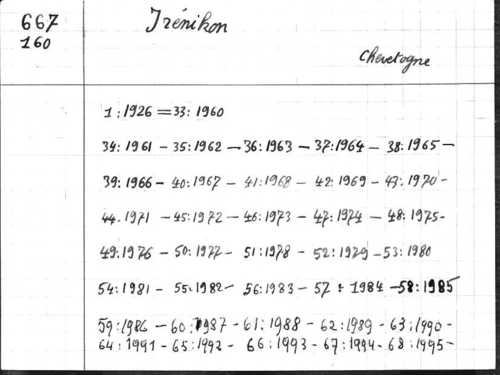 667
160
Irénikon
Chevetogne
1:1926=33:1960
34:1961-35:1962-36:1963-37:1964-38:1965-
39:1966-40:1967-41:1968-42:1969-43:1970-
44.1971-45:1972-46:1973-47:1974-48:1975-
49:1976-50:1977-51:1978-52:1979-53:1980
54:1981-55:1982-56:1983-57:1984-58:1985
59:1986-60:1987-61:1988-62:1989-63:1990-
64:1991-65:1992-66:1993-67:1994-68:1995-